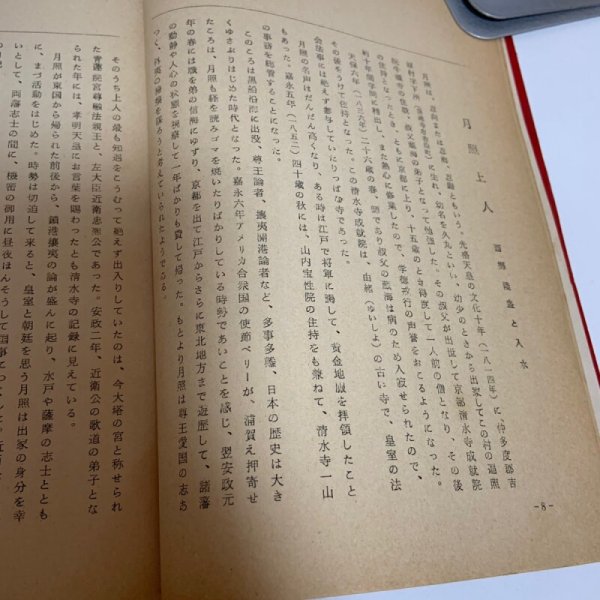 月照上人
西郷隆盛と入水
月照は、忍向または忍鎧、忍鎧ともいう。光格天皇の文化十年（一八一四年）に仲多度郡吉
に生れ、幼名を久丸といい、幼少のときから出家してこの村の遍照
院牛額寺の住職、叔父蔵海の弟子となって勉強した。その叔父が出世して京都清水寺成就院
の住持となったとき、ともに京都に上り、十五歳のとき得度して一人前の僧となり、その後
約十年間学問に精出し、また熱心に修業したので、学徳戒行の声誉をおこるようになった。
天保六年（一八三六年）二十六歳の春、師であり叔父の蔵海は病のため入寂せられたので、
その後をうけて住持となった。この清水寺成就院は、由緒（ゆいしよ）の古い寺で、皇室の法
会法事には絶えず参与していたりっぱな寺であった。
月照の名声はだんだん高くなり、ある時は江戸で将軍に謁して、黄金地獄を拝領したこと
もあった。嘉永五年（一八五二）四十歳の秋には、山内宝性院の住持をも兼ねて、清水寺一山
の事務を総管することになった。
このころは黒船沿岸に出没、尊王論者、攘夷開港論者など、多事多難、日本の歴史は大き
くゆさぶりはじめた時代となった。嘉永六年アメリカ合衆国の使節ペリーが、浦賀え押寄せ
たころは、月照も経を読みゴマを焼いたりばかりしている時勢でないことを感じ、翌安政元
年の春には職を弟の信海にゆずり、京都を出て江戸からさらに東北地方まで遊歴して、諸藩
の動静や人心の状態を視察して一年ばかりも費して帰った。もとより月照は尊王愛国の志あ
つく、外夷の掃攘を謀ろうと考えていられたようである。
そのうち上人の最も知遇をこうむって絶えず出入りしていたのは、今大塔の宮と称せられ
た青蓮院宮尊融法親王と、左大臣近衛忠熙公であった。安政二年、近衛公の歌道の弟子とな
られた年には、孝明天皇にお言葉を賜わったとも清水寺の記録に見えている。
月照が東国から帰られた前後から、鎖港攘夷の論が盛んに起り、水戸や薩摩の志士ととも
に、まづ活動をはじめた。時勢は切迫して来ると、皇室と朝廷を思う月照は出家の身分を幸
いとして、両藩志士の間に、機密の御用に昼夜ほんそうして国事につくした。近衛
-8-